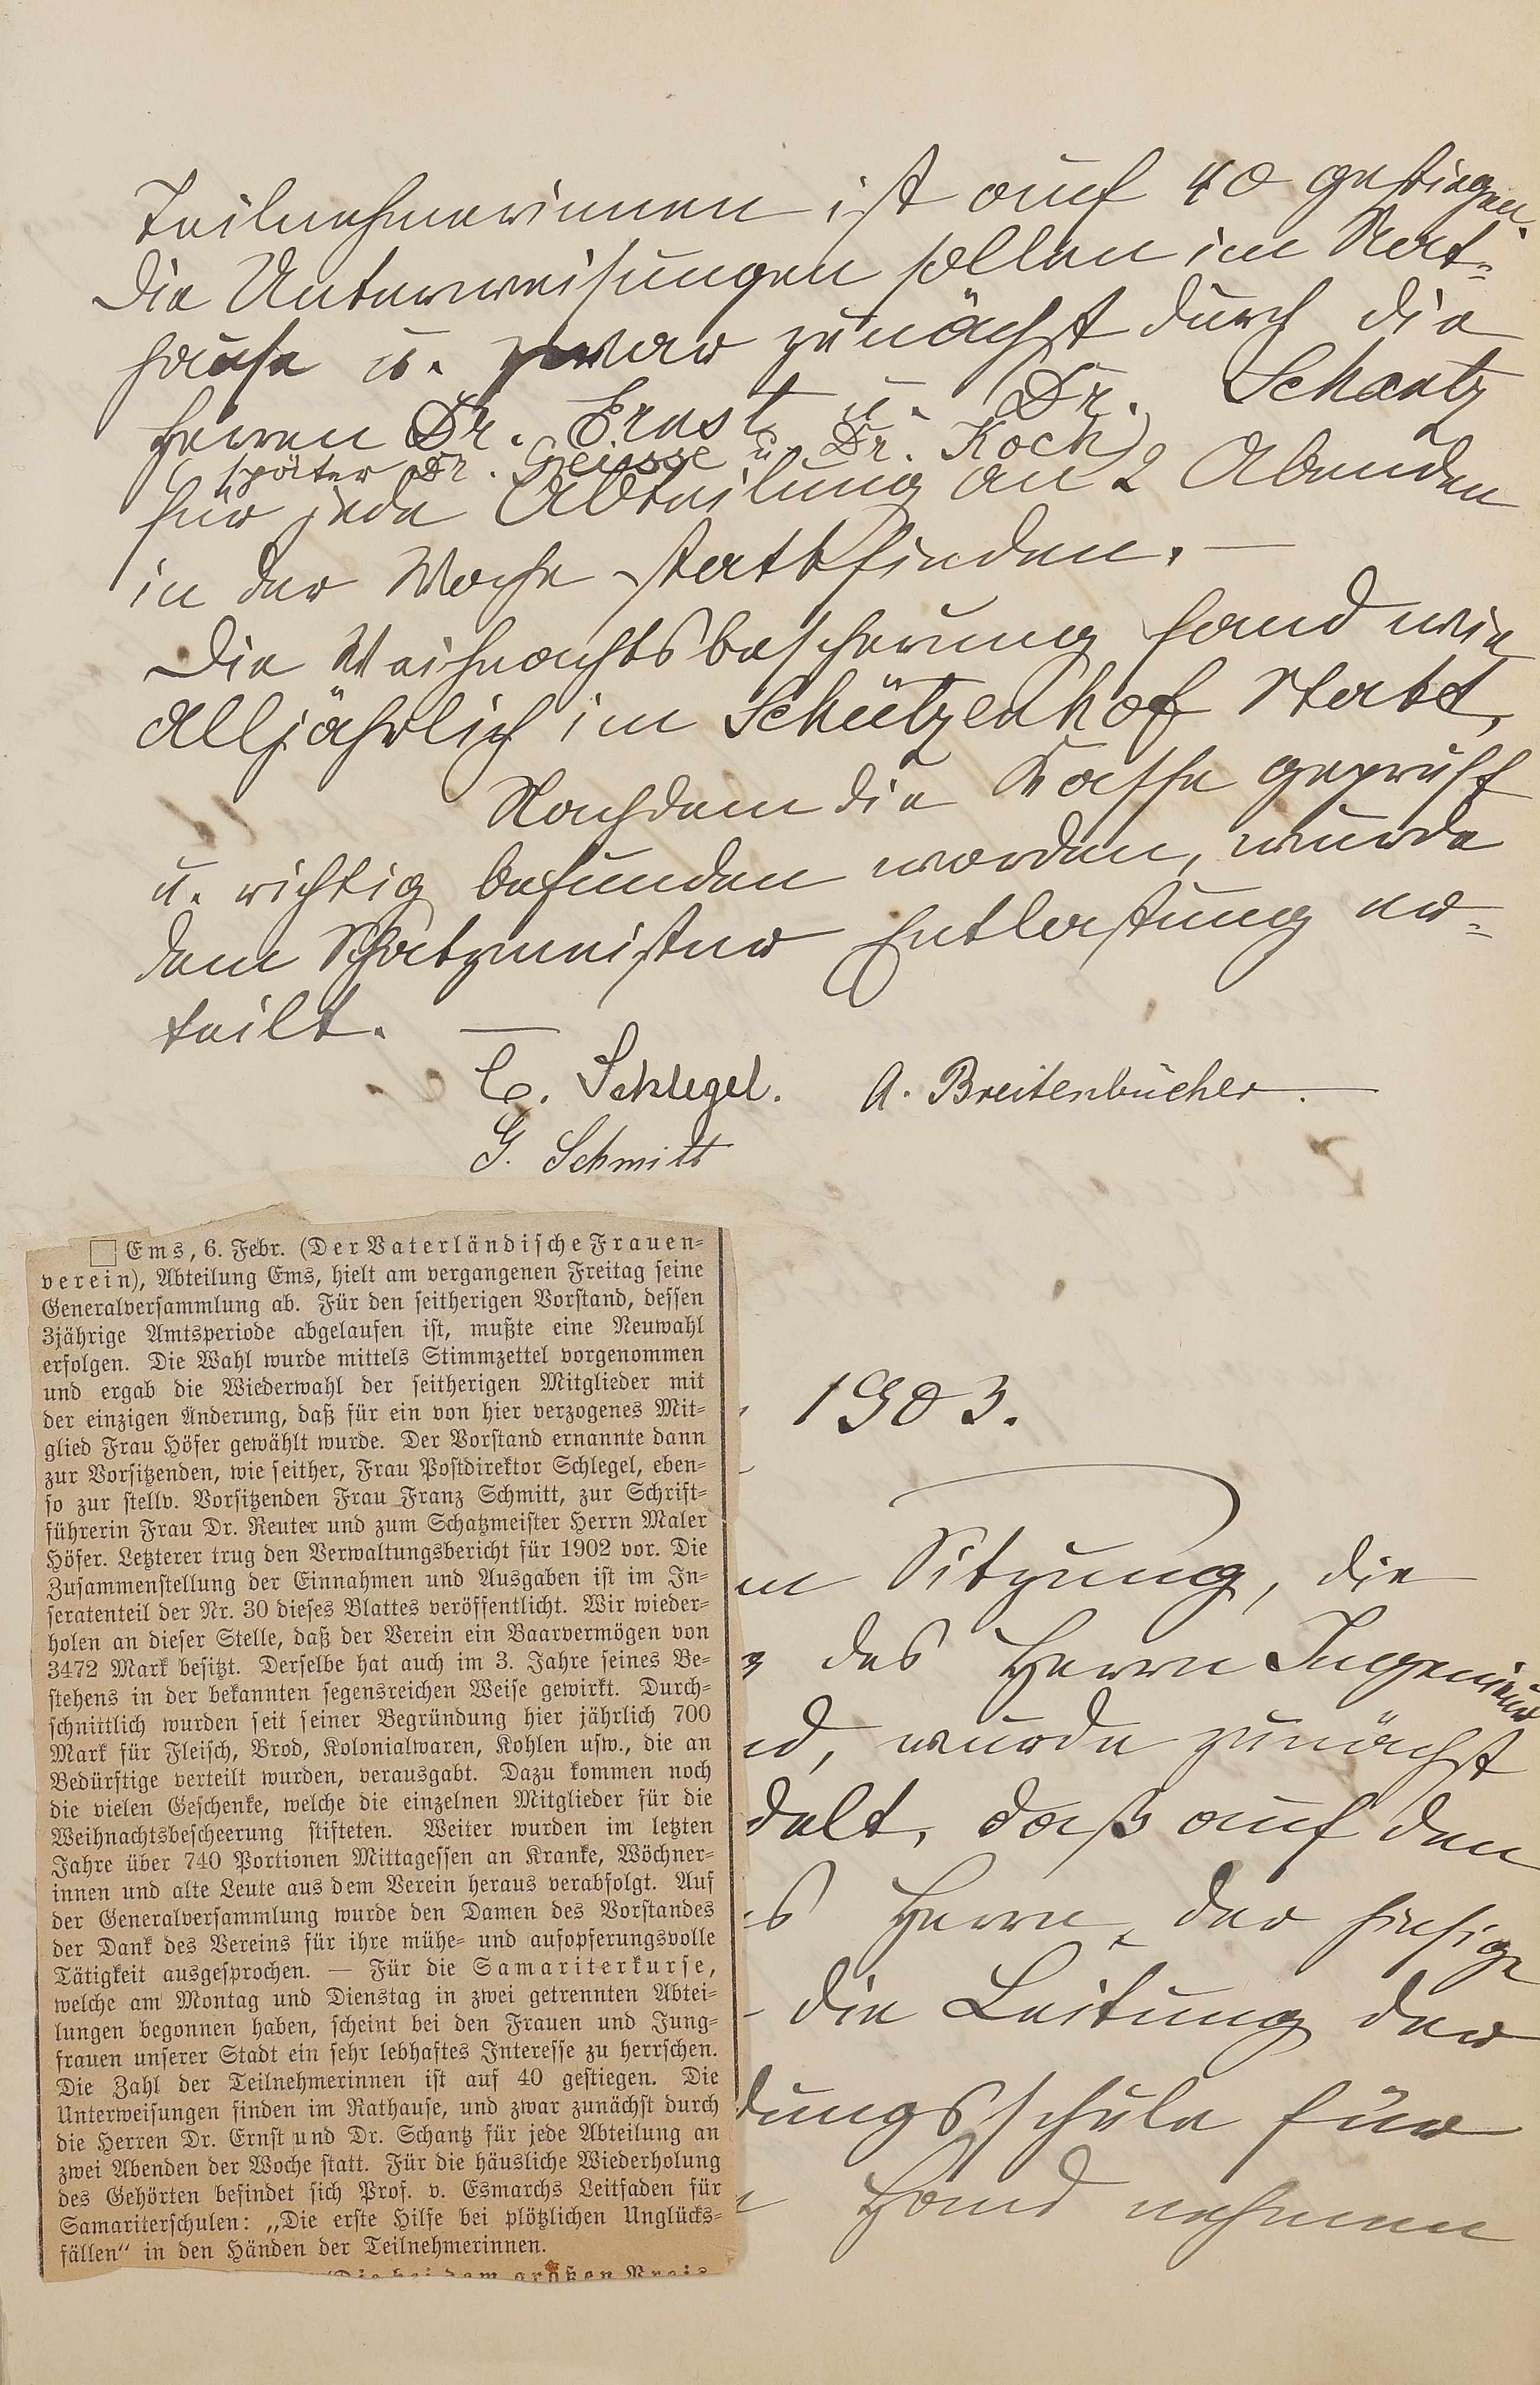 Teilnehmerinnen ist auf 40 gestiegen.
Die Unterweisungen sollen im Rat-
hause u. zwar zunächst durch die
Herren Dr. Ernst u. Dr. Schantz
(später Dr. Geisse u. Dr. Koch)
für jede Abteilung an 2 Abenden
in der Woche stattfinden. —
Die Weihnachtsbescherung fand wie
alljährlich im Schützenhof statt.
Nachdem die Kasse geprüft
u. richtig befunden worden, wurde
dem Schatzmeister Entlastung er-
teilt. —
C. Schlegel. A. Breitenbücher.
G. Schmitt
Ems, 6. Febr. (Der Vaterländische Frauen-
verein), Abteilung Ems, hielt am vergangenen Freitag seine
Generalversammlung ab. Für den seitherigen Vorstand, dessen
3jährige Amtsperiode abgelaufen ist, mußte eine Neuwahl
erfolgen. Die Wahl wurde mittels Stimmzettel vorgenommen
und ergab die Wiederwahl der seitherigen Mitglieder mit
der einzigen Änderung, daß für ein von hier verzogenes Mit-
glied Frau Höfer gewählt wurde. Der Vorstand ernannte dann
zur Vorsitzenden, wie seither, Frau Postdirektor Schlegel, eben-
so zur stellv. Vorsitzenden Frau Franz Schmitt, zur Schrift-
führerin Frau Dr. Reuter und zum Schatzmeister Herrn Maler
Höfer. Letzterer trug den Verwaltungsbericht für 1902 vor. Die
Zusammenstellung der Einnahmen und Ausgaben ist im In-
seratenteil der Nr. 30 dieses Blattes veröffentlicht. Wir wieder-
holen an dieser Stelle, daß der Verein ein Baarvermögen von
3472 Mark besitzt. Derselbe hat auch im 3. Jahre seines Be-
stehens in der bekannten segensreichen Weise gewirkt. Durch-
schnittlich wurden seit seiner Begründung hier jährlich 700
Mark für Fleisch, Brod, Kolonialwaren, Kohlen usw., die an
Bedürftige verteilt wurden, verausgabt. Dazu kommen noch
die vielen Geschenke, welche die einzelnen Mitglieder für die
Weihnachtsbescheerung stifteten. Weiter wurden im letzten
Jahre über 740 Portionen Mittagessen an Kranke, Wöchner-
innen und alte Leute aus dem Verein heraus verabfolgt. Auf
der Generalversammlung wurde den Damen des Vorstandes
der Dank des Vereins für ihre mühe- und aufopferungsvolle
Tätigkeit ausgesprochen. — Für die Samariterkurse,
welche am Montag und Dienstag in zwei getrennten Abtei-
lungen begonnen haben, scheint bei den Frauen und Jung-
frauen unserer Stadt ein sehr lebhaftes Interesse zu herrschen.
Die Zahl der Teilnehmerinnen ist auf 40 gestiegen. Die
Unterweisungen finden im Rathause, und zwar zunächst durch
die Herren Dr. Ernst und Dr. Schantz für jede Abteilung an
zwei Abenden der Woche statt. Für die häusliche Wiederholung
des Gehörten befindet sich Prof. v. Esmarchs Leitfaden für
Samariterschulen: „Die erste Hilfe bei plötzlichen Unglücks-
fällen“ in den Händen der Teilnehmerinnen.
(Die bei dem großen Preis
1903.
Sitzung, die
des Herrn Ingenieur
d, wurde zunächst
delt, daß auf den
s Herrn, der hiesige
die Leitung der
dungsschule für
Hand nehmen